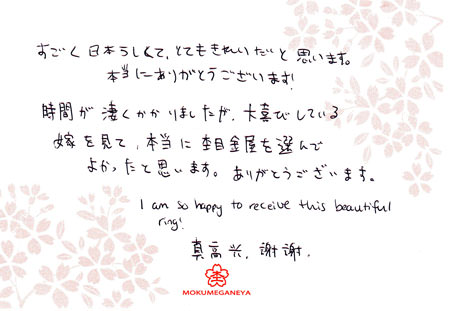 すごく日本らしくて、とてもきれいだと思います。
本当にありがとうございます!
時間が凄くかかりましたが、大喜びしている
嫁を見て、本当に杢目金屋を選んで
よかったと思います。ありがとうございます。
I am so happy to receive this beautiful
ring!
真高兴,谢谢。
MOKUMEGANEYA